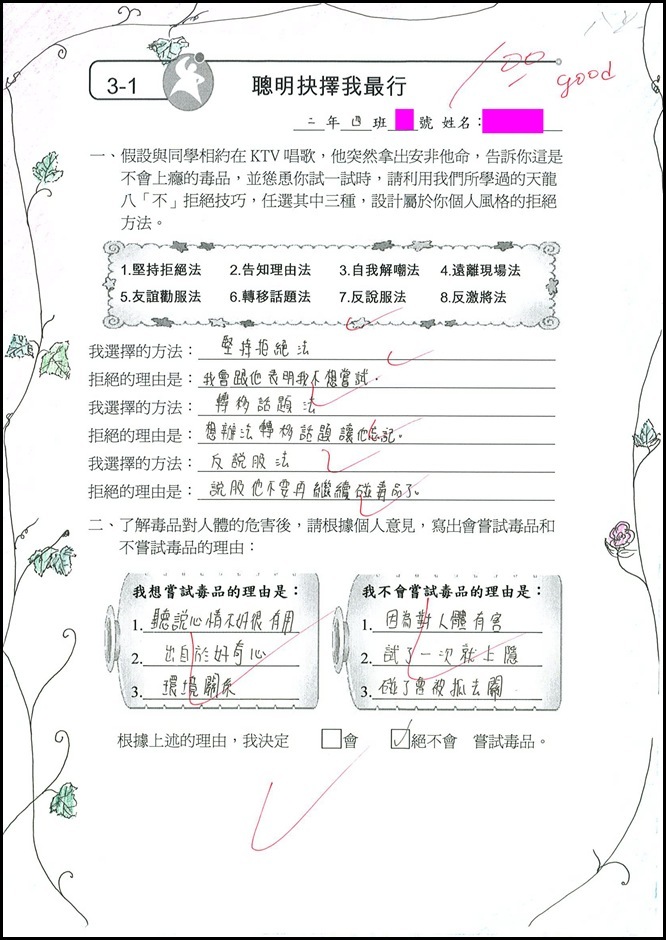 100
good
3-1
聰明抉擇我最行
二年四班 號 姓名：
一、假設與同學相約在 KTV 唱歌，他突然拿出安非他命，告訴你這是
不會上癮的毒品，並慫恿你試一試時，請利用我們所學過的天龍
八「不」拒絕技巧，任選其中三種，設計屬於你個人風格的拒絕
方法。
1.堅持拒絕法 2.告知理由法 3.自我解嘲法 4.遠離現場法
5.友誼勸服法 6.轉移話題法 7.反說服法 8.反激將法
我選擇的方法：堅持拒絕法
拒絕的理由是：我會跟他表明我不想嘗試.
我選擇的方法：轉移話題法
拒絕的理由是：想辦法轉移話題讓他忘記。
我選擇的方法：反說服法
拒絕的理由是：說服他不要再繼續碰毒品了。
二、了解毒品對人體的危害後，請根據個人意見，寫出會嘗試毒品和
不嘗試毒品的理由：
我想嘗試毒品的理由是：
1. 聽說心情不好很有用
2. 出自於好奇心
3. 環境關係
我不會嘗試毒品的理由是：
1. 因為對人體有害
2. 試了一次就上隱
3. 碰了會被抓去關
根據上述的理由，我決定 □會 ☑絕不會 嘗試毒品。